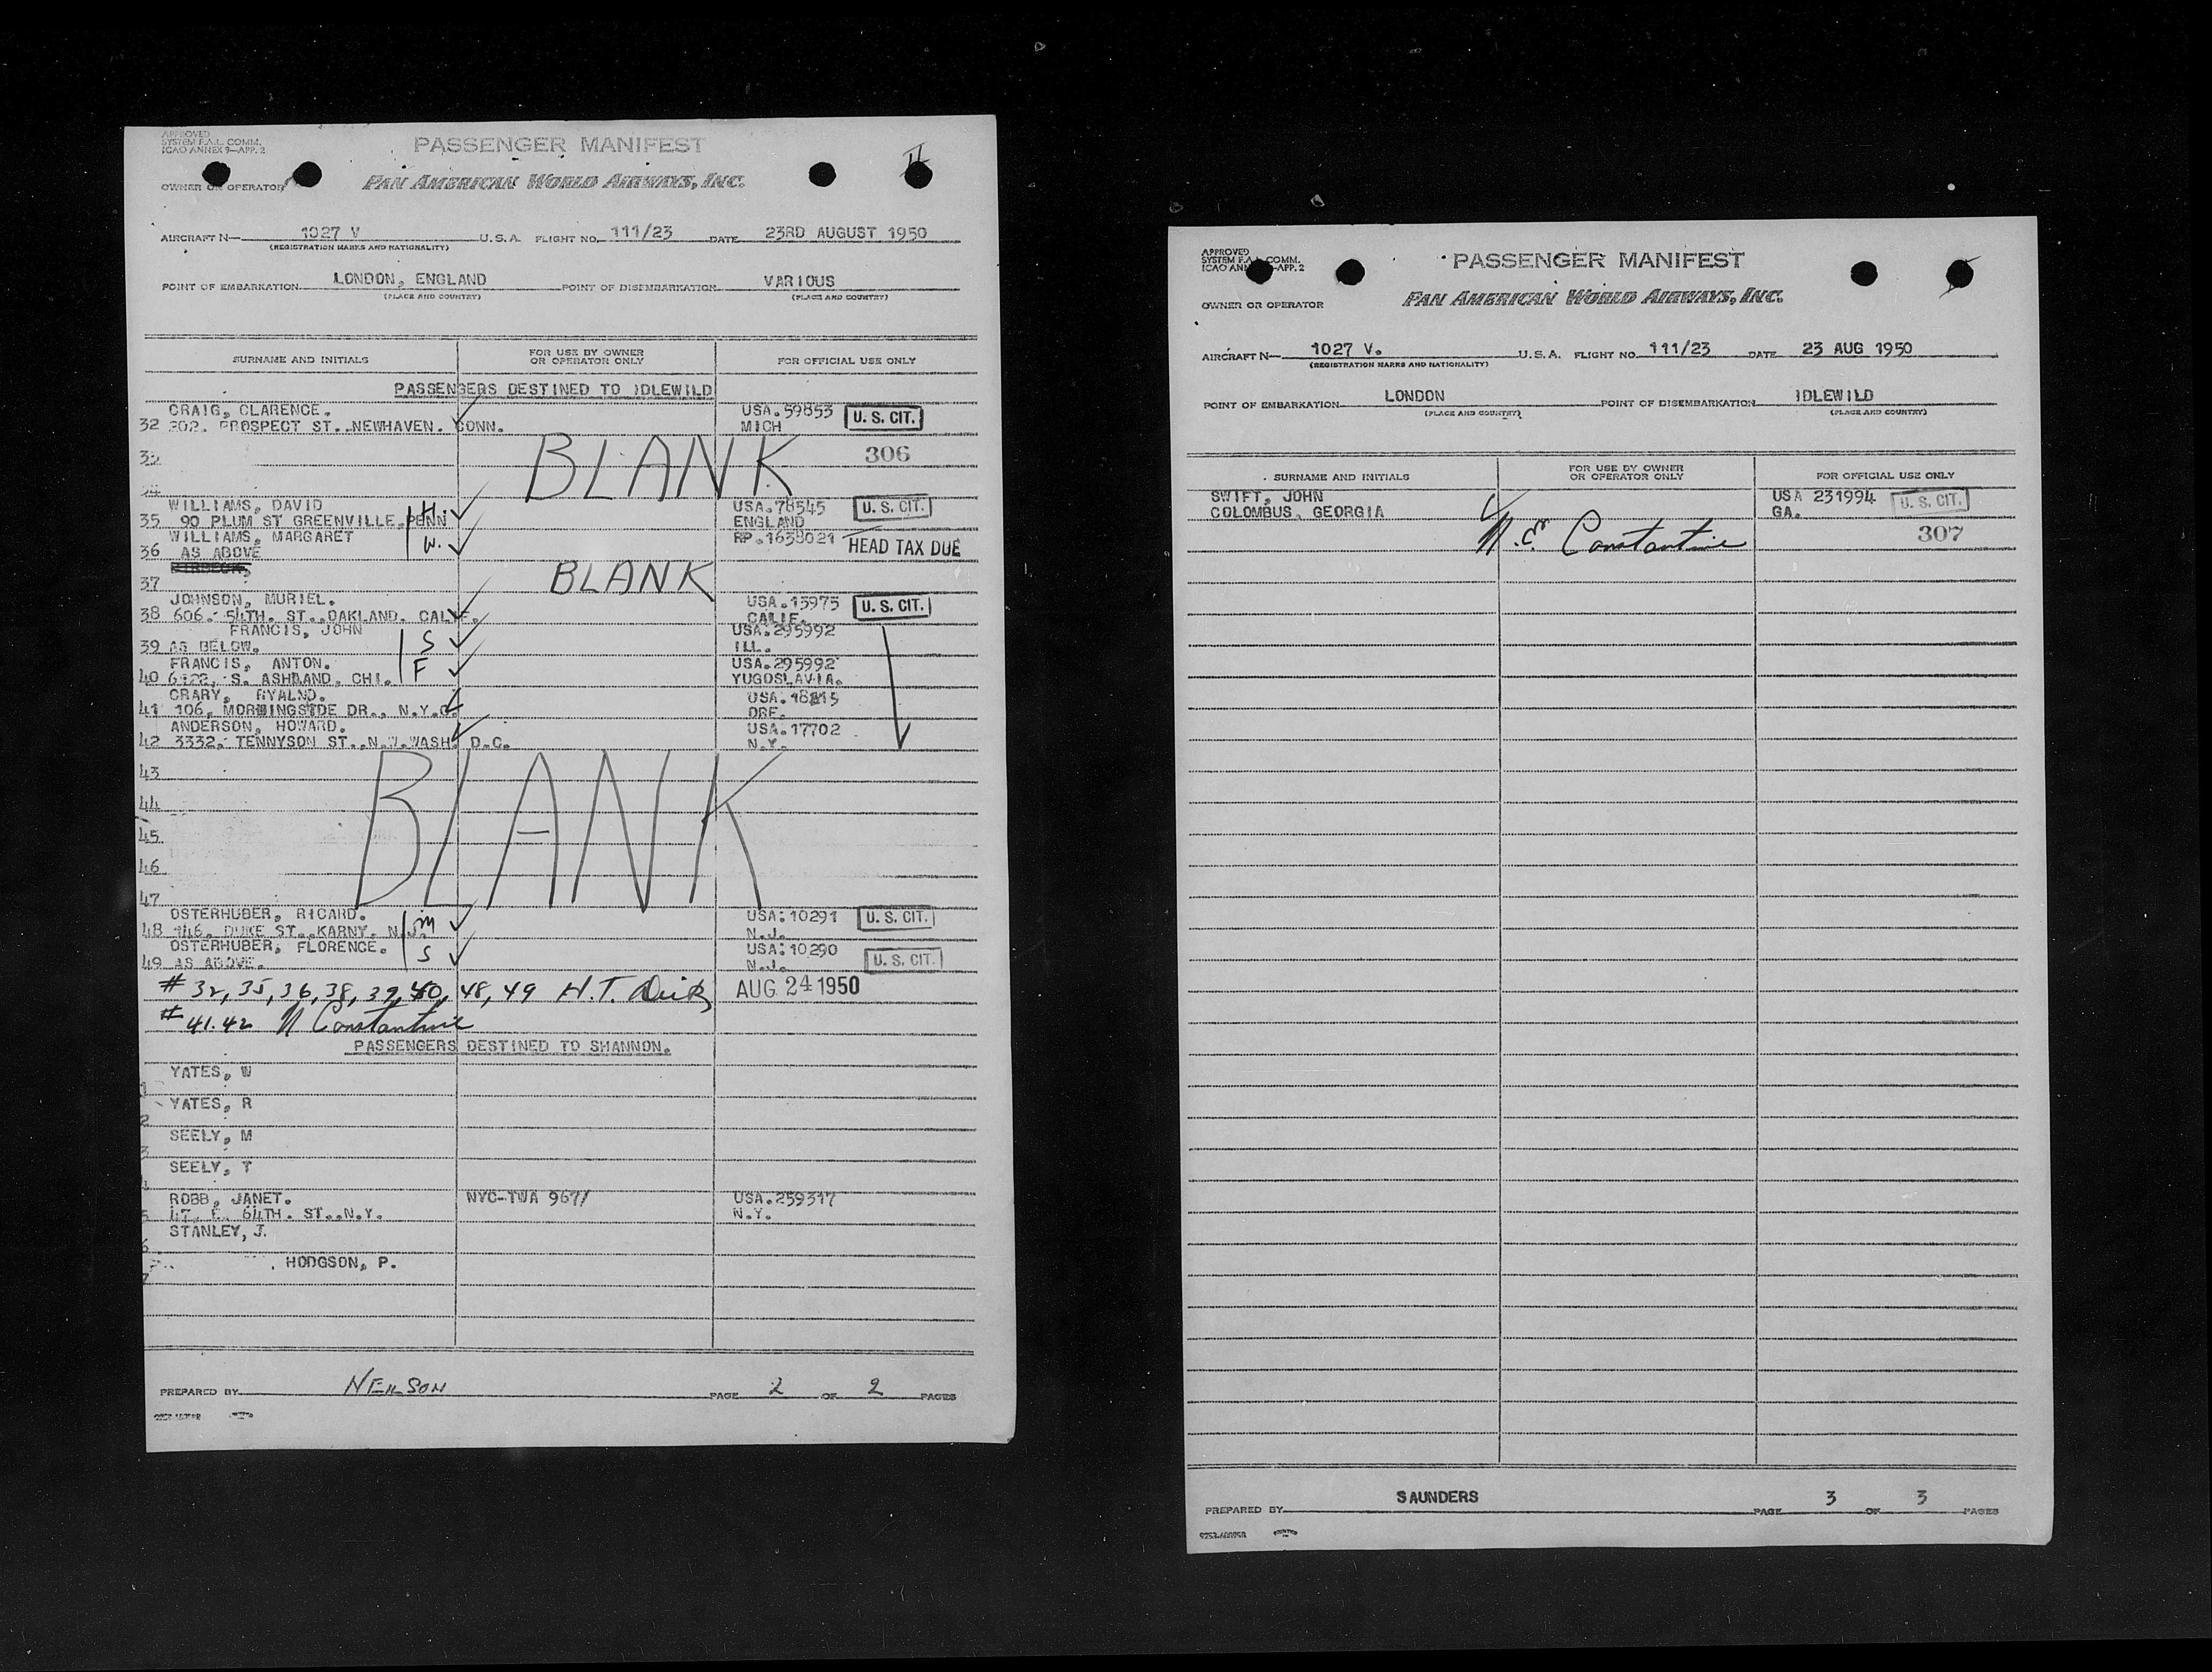 APPROVED
SYSTEM F.A.L. COMM.
ICAO ANNEX 9—APP. 2
PASSENGER MANIFEST
II
OWNER OR OPERATOR
PAN AMERICAN WORLD AIRWAYS, INC.
AIRCRAFT N— 1027 V U.S.A. FLIGHT NO. 111/23 DATE 23RD AUGUST 1950
(REGISTRATION MARKS AND NATIONALITY)
POINT OF EMBARKATION LONDON, ENGLAND POINT OF DISEMBARKATION VARIOUS
(PLACE AND COUNTRY) (PLACE AND COUNTRY)
SURNAME AND INITIALS FOR USE BY OWNER OR OPERATOR ONLY FOR OFFICIAL USE ONLY
PASSENGERS DESTINED TO IDLEWILD
CRAIG, CLARENCE. USA.59853 U. S. CIT.
32 302. PROSPECT ST..NEWHAVEN. CONN. MICH
33 BLANK 306
34
WILLIAMS, DAVID H. USA.78545 U. S. CIT.
35 90 PLUM ST GREENVILLE,PENN ENGLAND
WILLIAMS, MARGARET W. RP.1638021 HEAD TAX DUE
36 AS ABOVE
37 BLANK
JOHNSON, MURIEL. USA.13975 U. S. CIT.
38 606.- 54TH. ST..OAKLAND. CALIF. CALIF.
FRANCIS, JOHN S USA.295992
39 AS BELOW. ILL.
FRANCIS, ANTON. F USA.295992
40 S. ASHLAND. CHI. YUGOSLAVIA.
CRARY, RYALND. USA.18215
41 106, MORNINGSIDE DR., N.Y.C. ORE.
ANDERSON, HOWARD. USA.17702
42 3332.- TENNYSON ST..N.W.WASH. D.C. N.Y.
43 BLANK
44
45
46
47
OSTERHUBER, RICARD. M USA.10291 U. S. CIT.
48 146. DUKE ST..KARNY. N.J. N.J.
OSTERHUBER, FLORENCE. S USA.10290 U. S. CIT.
49 AS ABOVE. N.J.
# 32, 35, 36, 38, 39, 40, 48, 49 H.T. AUG 24 1950
# 41. 42 N Constantine
PASSENGERS DESTINED TO SHANNON.
YATES, W
1
YATES, R
2
SEELY, M
3
SEELY, T
4
ROBB, JANET. NYC-TWA 967/ USA.259317
5 47. E. 64TH. ST..N.Y. N.Y.
STANLEY, J.
6
HODGSON, P.
7
PREPARED BY NEILSON PAGE 2 OF 2 PAGES
APPROVED
SYSTEM F.A.L. COMM.
ICAO ANNEX 9—APP. 2
PASSENGER MANIFEST
OWNER OR OPERATOR
PAN AMERICAN WORLD AIRWAYS, INC.
AIRCRAFT N— 1027 V. U.S.A. FLIGHT NO. 111/23 DATE 23 AUG 1950
(REGISTRATION MARKS AND NATIONALITY)
POINT OF EMBARKATION LONDON POINT OF DISEMBARKATION IDLEWILD
(PLACE AND COUNTRY) (PLACE AND COUNTRY)
SURNAME AND INITIALS FOR USE BY OWNER OR OPERATOR ONLY FOR OFFICIAL USE ONLY
SWIFT, JOHN USA 231994 U. S. CIT.
COLOMBUS, GEORGIA GA.
Constantine 307
PREPARED BY SAUNDERS PAGE 3 OF 3 PAGES